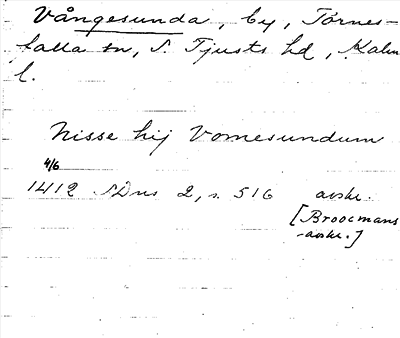 Vångesunda, by, Törnes-
falla sn, S. Tjusts hd, Kalm.
l.
Nisse hij Vomesundum
4/6
1412 SDns 2, s. 516 avskr.
[Broocmans
-avskr.]